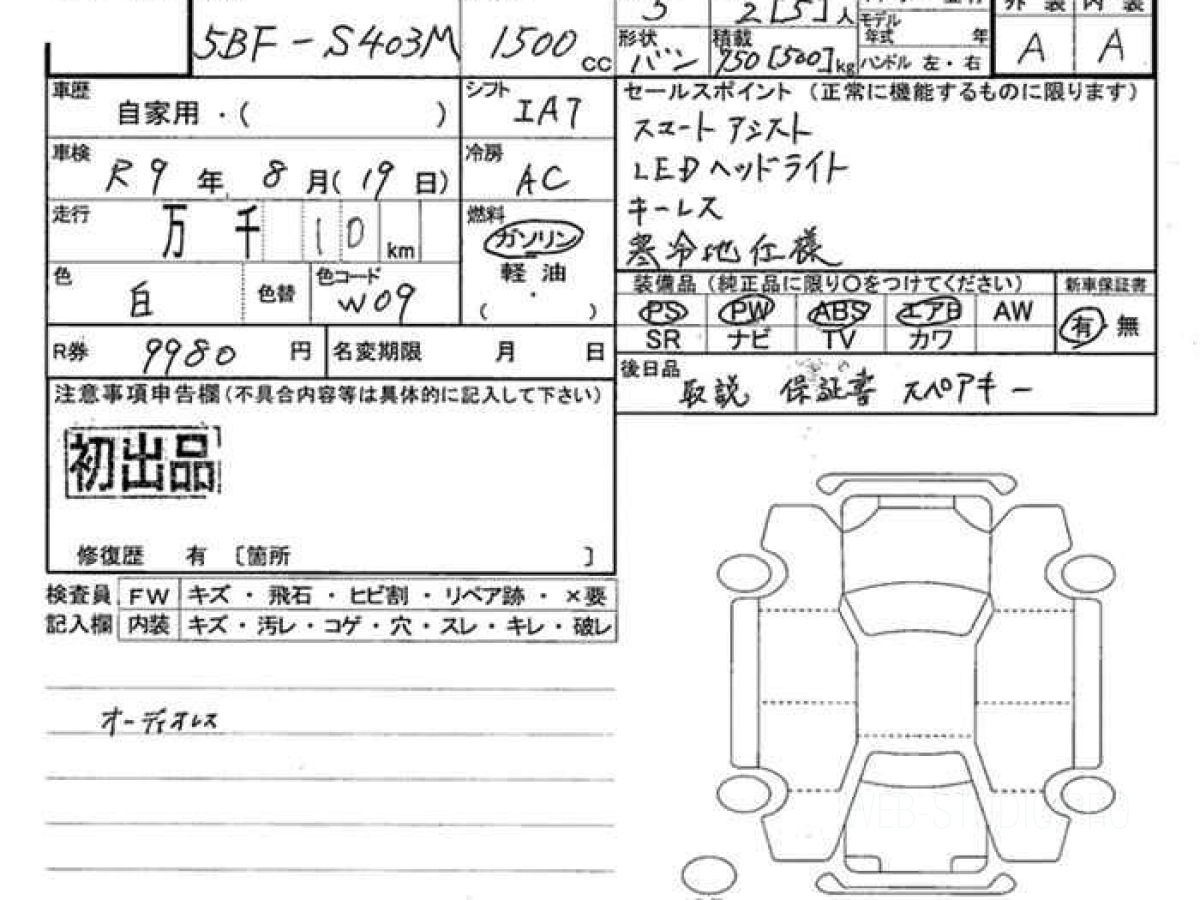 5BF-S403M 1500 cc
5 2[5]人
形状 バン 積載 750[500]kg
モデル年式 年
ハンドル 左・右
外装 内装
A A
車歴 自家用・( )
シフト IA7
車検 R9年 8月(19日)
冷房 AC
走行 万 千 10 km
燃料 ガソリン
軽油
・
( )
色 白 色替 色コード W09
R券 9980 円 名変期限 月 日
セールスポイント(正常に機能するものに限ります)
スマートアシスト
LEDヘッドライト
キーレス
寒冷地仕様
装備品(純正品に限り○をつけてください) 新車保証書
PS PW ABS エアB AW 有・無
SR ナビ TV カワ
後日品 取説 保証書 スペアキー
注意事項申告欄(不具合内容等は具体的に記入して下さい)
初出品
修復歴 有 〔箇所 〕
検査員 FW キズ・飛石・ヒビ割・リペア跡・×要
記入欄 内装 キズ・汚レ・コゲ・穴・スレ・キレ・破レ
オーディオレス